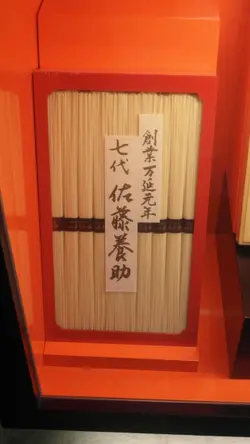 創業万延元年
七代 佐藤養助